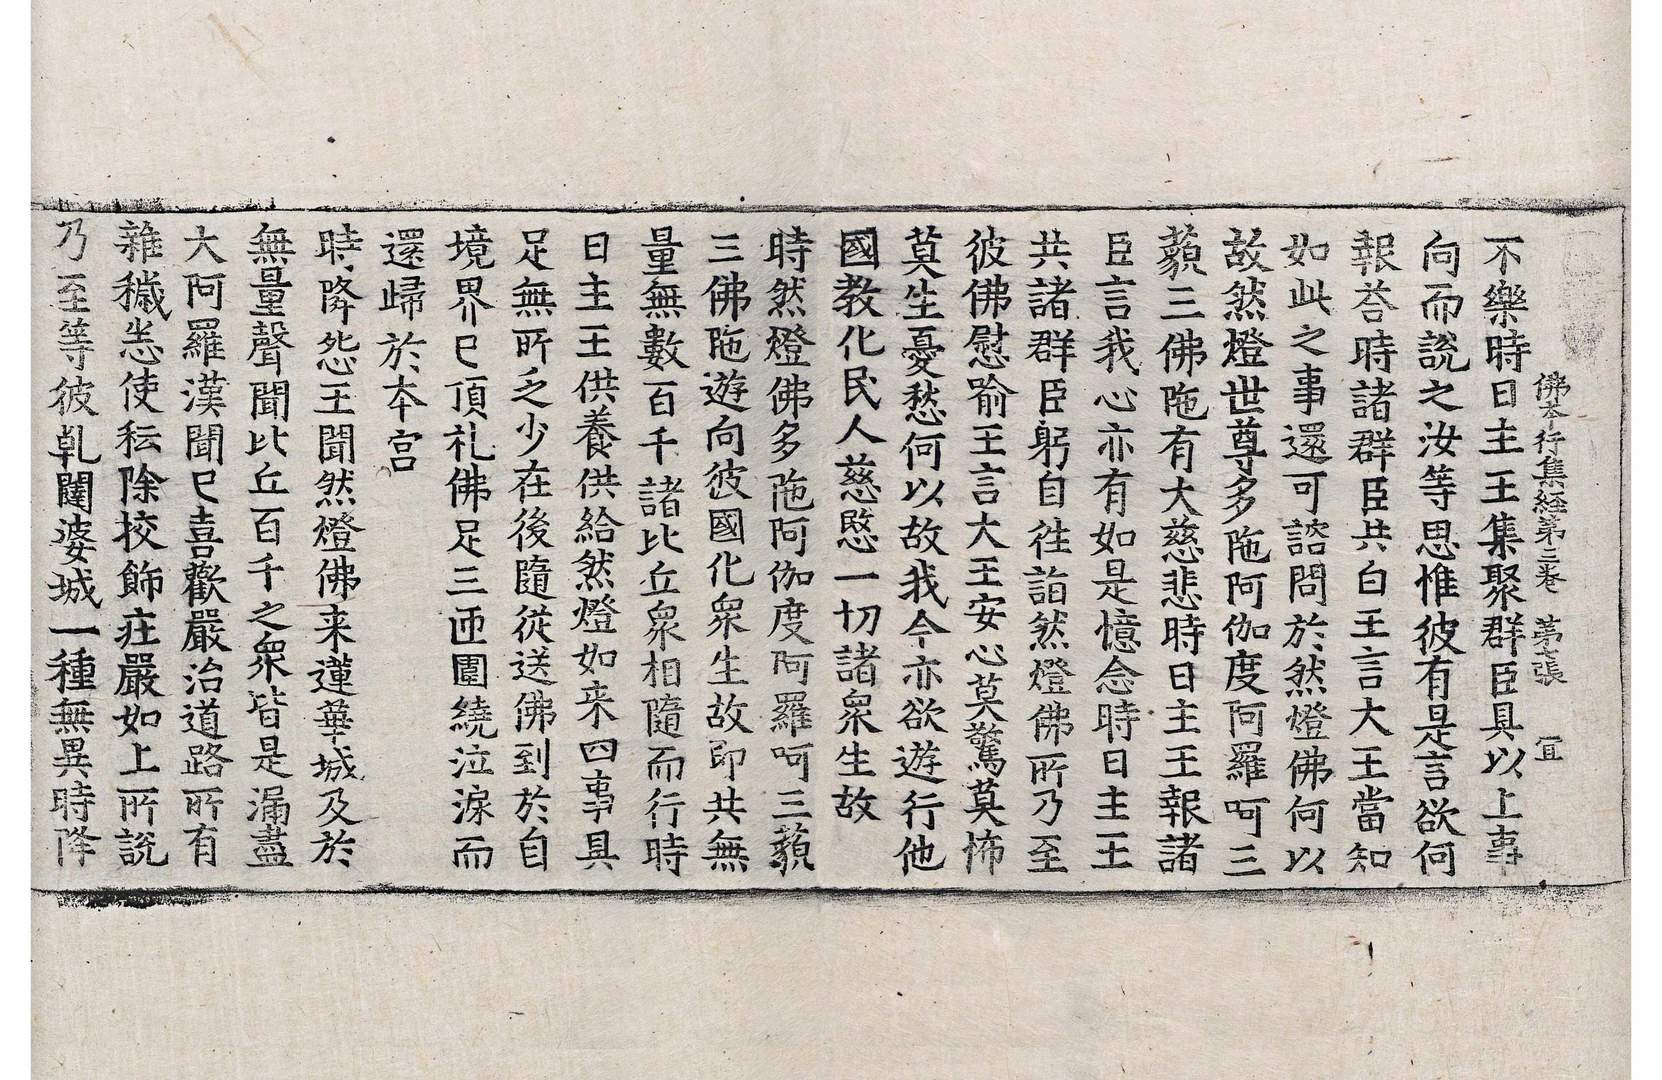 佛本行集経第三巻　第七張　宜
不樂時日主王集聚群臣具以上事
向而說之汝等思惟彼有是言欲何
報荅時諸群臣共白王言大王當知
如此之事還可諮問於然燈佛何以
故然燈世尊多陁阿伽度阿羅呵三
藐三佛陁有大慈悲時日主王報諸
臣言我心亦有如是憶念時日主王
共諸群臣躬自往詣然燈佛所乃至
彼佛慰喻王言大王安心莫驚莫怖
莫生憂愁何以故我今亦欲遊行他
國教化民人慈愍一切諸衆生故
時然燈佛多陁阿伽度阿羅呵三藐
三佛陁遊向彼國化衆生故即共無
量無數百千諸比丘衆相隨而行時
日主王供養供給然燈如来四事具
足無所乏少在後隨從送佛到於自
境界已頂礼佛足三匝圍繞泣淚而
還歸於本宫
時降怨王聞然燈佛来蓮華城及於
無量聲聞比丘百千之衆皆是漏盡
大阿羅漢聞已喜歡嚴治道路所有
雜穢恙使秐除挍飾庄嚴如上所說
乃至等彼乹闥婆城一種無異時降